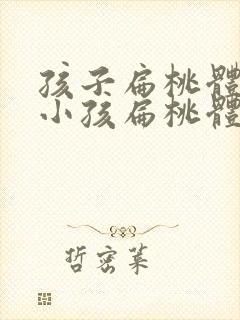 孩子扁桃體
小孩扁桃體
哲密萊